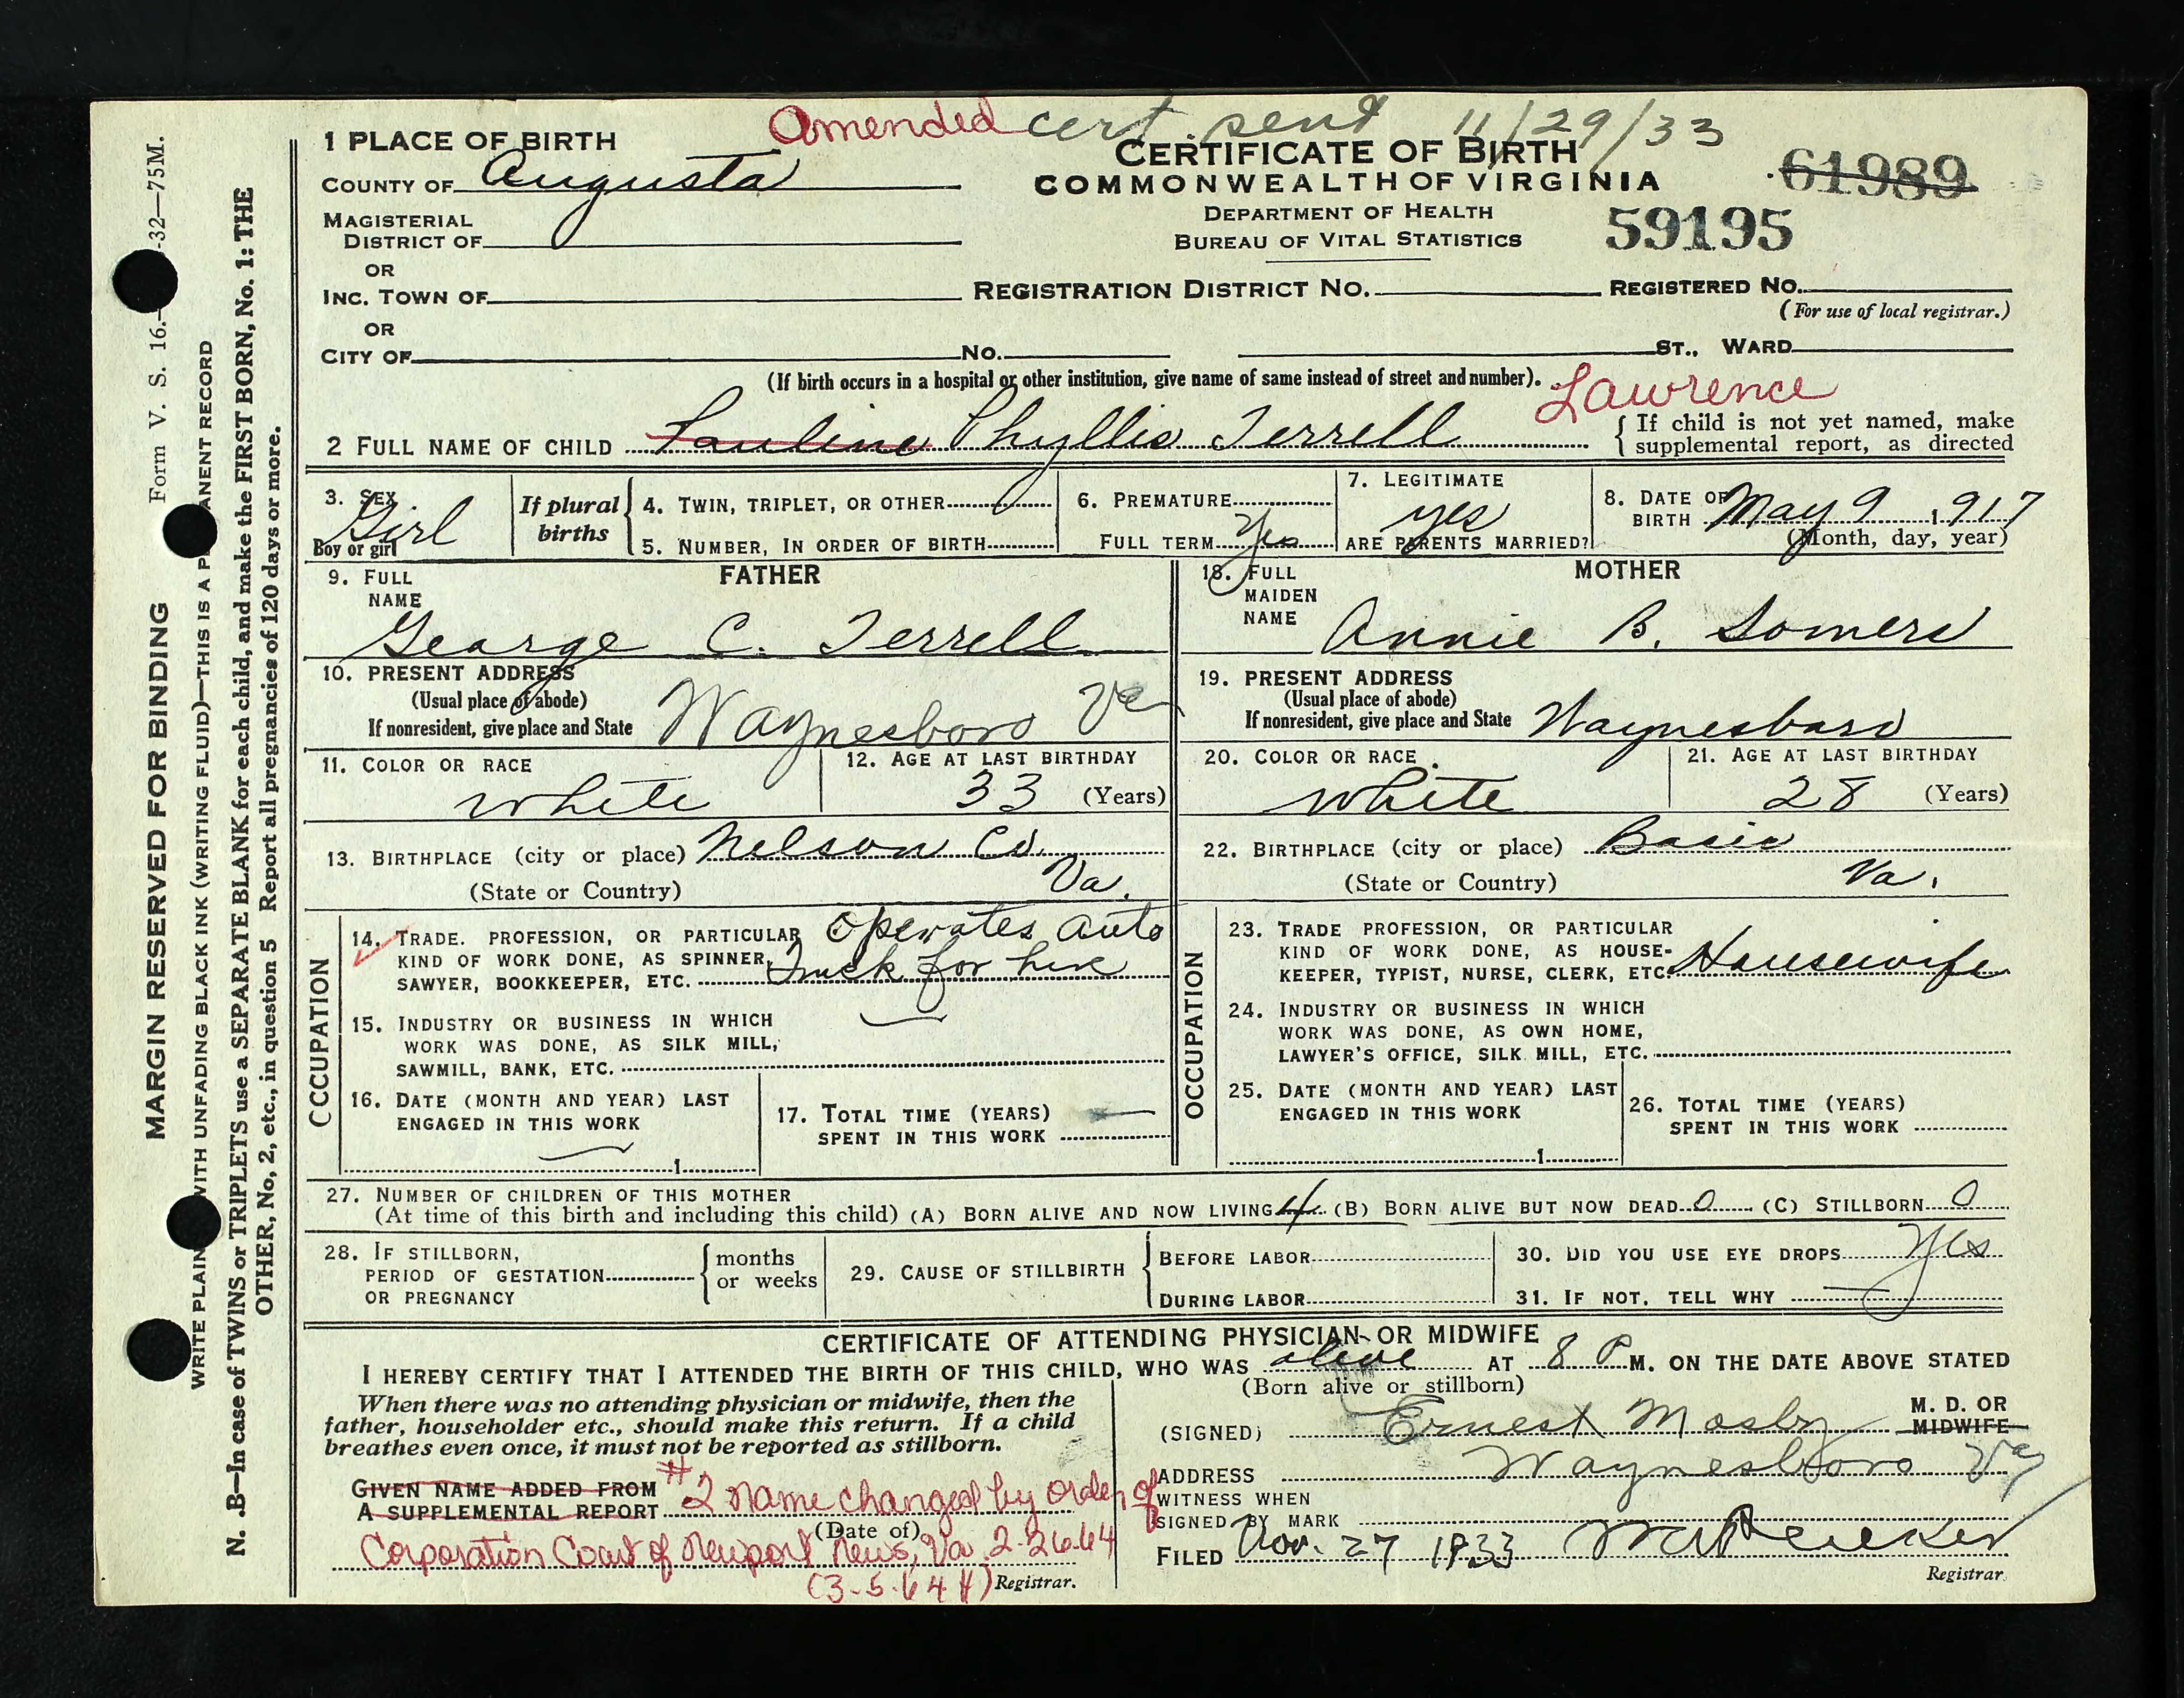 Amended cert. sent 11/29/33
1 PLACE OF BIRTH
COUNTY OF Augusta
MAGISTERIAL
DISTRICT OF
OR
INC. TOWN OF
OR
CITY OF No. ST., WARD
CERTIFICATE OF BIRTH
COMMONWEALTH OF VIRGINIA
DEPARTMENT OF HEALTH
BUREAU OF VITAL STATISTICS
61989
59195
REGISTRATION DISTRICT NO. REGISTERED NO.
(For use of local registrar.)
(If birth occurs in a hospital or other institution, give name of same instead of street and number).
Lawrence
2 FULL NAME OF CHILD Pauline Phyllis Terrell
{ If child is not yet named, make
supplemental report, as directed
3. SEX
Girl
Boy or girl
If plural
births
4. TWIN, TRIPLET, OR OTHER
5. NUMBER, IN ORDER OF BIRTH
6. PREMATURE
FULL TERM Yes
7. LEGITIMATE
yes
ARE PARENTS MARRIED?
8. DATE OF
BIRTH May 9 1917
(Month, day, year)
FATHER
9. FULL
NAME
George C. Terrell
10. PRESENT ADDRESS
(Usual place of abode)
If nonresident, give place and State Waynesboro Va
11. COLOR OR RACE
white
12. AGE AT LAST BIRTHDAY
33 (Years)
13. BIRTHPLACE (city or place) Nelson Co.
(State or Country) Va.
OCCUPATION
14. TRADE. PROFESSION, OR PARTICULAR
KIND OF WORK DONE, AS SPINNER,
SAWYER, BOOKKEEPER, ETC.
Operates Auto
Truck for hire
15. INDUSTRY OR BUSINESS IN WHICH
WORK WAS DONE, AS SILK MILL,
SAWMILL, BANK, ETC.
16. DATE (MONTH AND YEAR) LAST
ENGAGED IN THIS WORK
1
17. TOTAL TIME (YEARS)
SPENT IN THIS WORK
MOTHER
18. FULL
MAIDEN
NAME
Annie B. Somers
19. PRESENT ADDRESS
(Usual place of abode)
If nonresident, give place and State Waynesboro
20. COLOR OR RACE
white
21. AGE AT LAST BIRTHDAY
28 (Years)
22. BIRTHPLACE (city or place) Basic
(State or Country) Va.
OCCUPATION
23. TRADE PROFESSION, OR PARTICULAR
KIND OF WORK DONE, AS HOUSE-
KEEPER, TYPIST, NURSE, CLERK, ETC. Housewife
24. INDUSTRY OR BUSINESS IN WHICH
WORK WAS DONE, AS OWN HOME,
LAWYER'S OFFICE, SILK MILL, ETC.
25. DATE (MONTH AND YEAR) LAST
ENGAGED IN THIS WORK
1
26. TOTAL TIME (YEARS)
SPENT IN THIS WORK
27. NUMBER OF CHILDREN OF THIS MOTHER
(At time of this birth and including this child) (A) BORN ALIVE AND NOW LIVING 4 (B) BORN ALIVE BUT NOW DEAD 0 (C) STILLBORN 0
28. IF STILLBORN,
PERIOD OF GESTATION
OR PREGNANCY
{ months
or weeks
29. CAUSE OF STILLBIRTH
BEFORE LABOR
DURING LABOR
30. DID YOU USE EYE DROPS Yes
31. IF NOT, TELL WHY
CERTIFICATE OF ATTENDING PHYSICIAN OR MIDWIFE
I HEREBY CERTIFY THAT I ATTENDED THE BIRTH OF THIS CHILD, WHO WAS alive AT 8 P M. ON THE DATE ABOVE STATED
(Born alive or stillborn)
When there was no attending physician or midwife, then the
father, householder etc., should make this return. If a child
breathes even once, it must not be reported as stillborn.
GIVEN NAME ADDED FROM
A SUPPLEMENTAL REPORT #2 Name changed by order of
(Date of)
Corporation Court of Newport News, Va 2-26-64
(3-5-64 H) Registrar.
(SIGNED) Ernest Mosby M. D. OR
MIDWIFE
ADDRESS Waynesboro Va
WITNESS WHEN
SIGNED BY MARK
FILED Nov. 27 1933
Registrar
Form V. S. 16.—-32—75M.
MARGIN RESERVED FOR BINDING
WRITE PLAIN WITH UNFADING BLACK INK (WRITING FLUID)—THIS IS A P ANENT RECORD
N. .B—In case of TWINS or TRIPLETS use a SEPARATE BLANK for each child, and make the FIRST BORN, No. 1: THE
OTHER, No, 2, etc., in question 5 Report all pregnancies of 120 days or more.